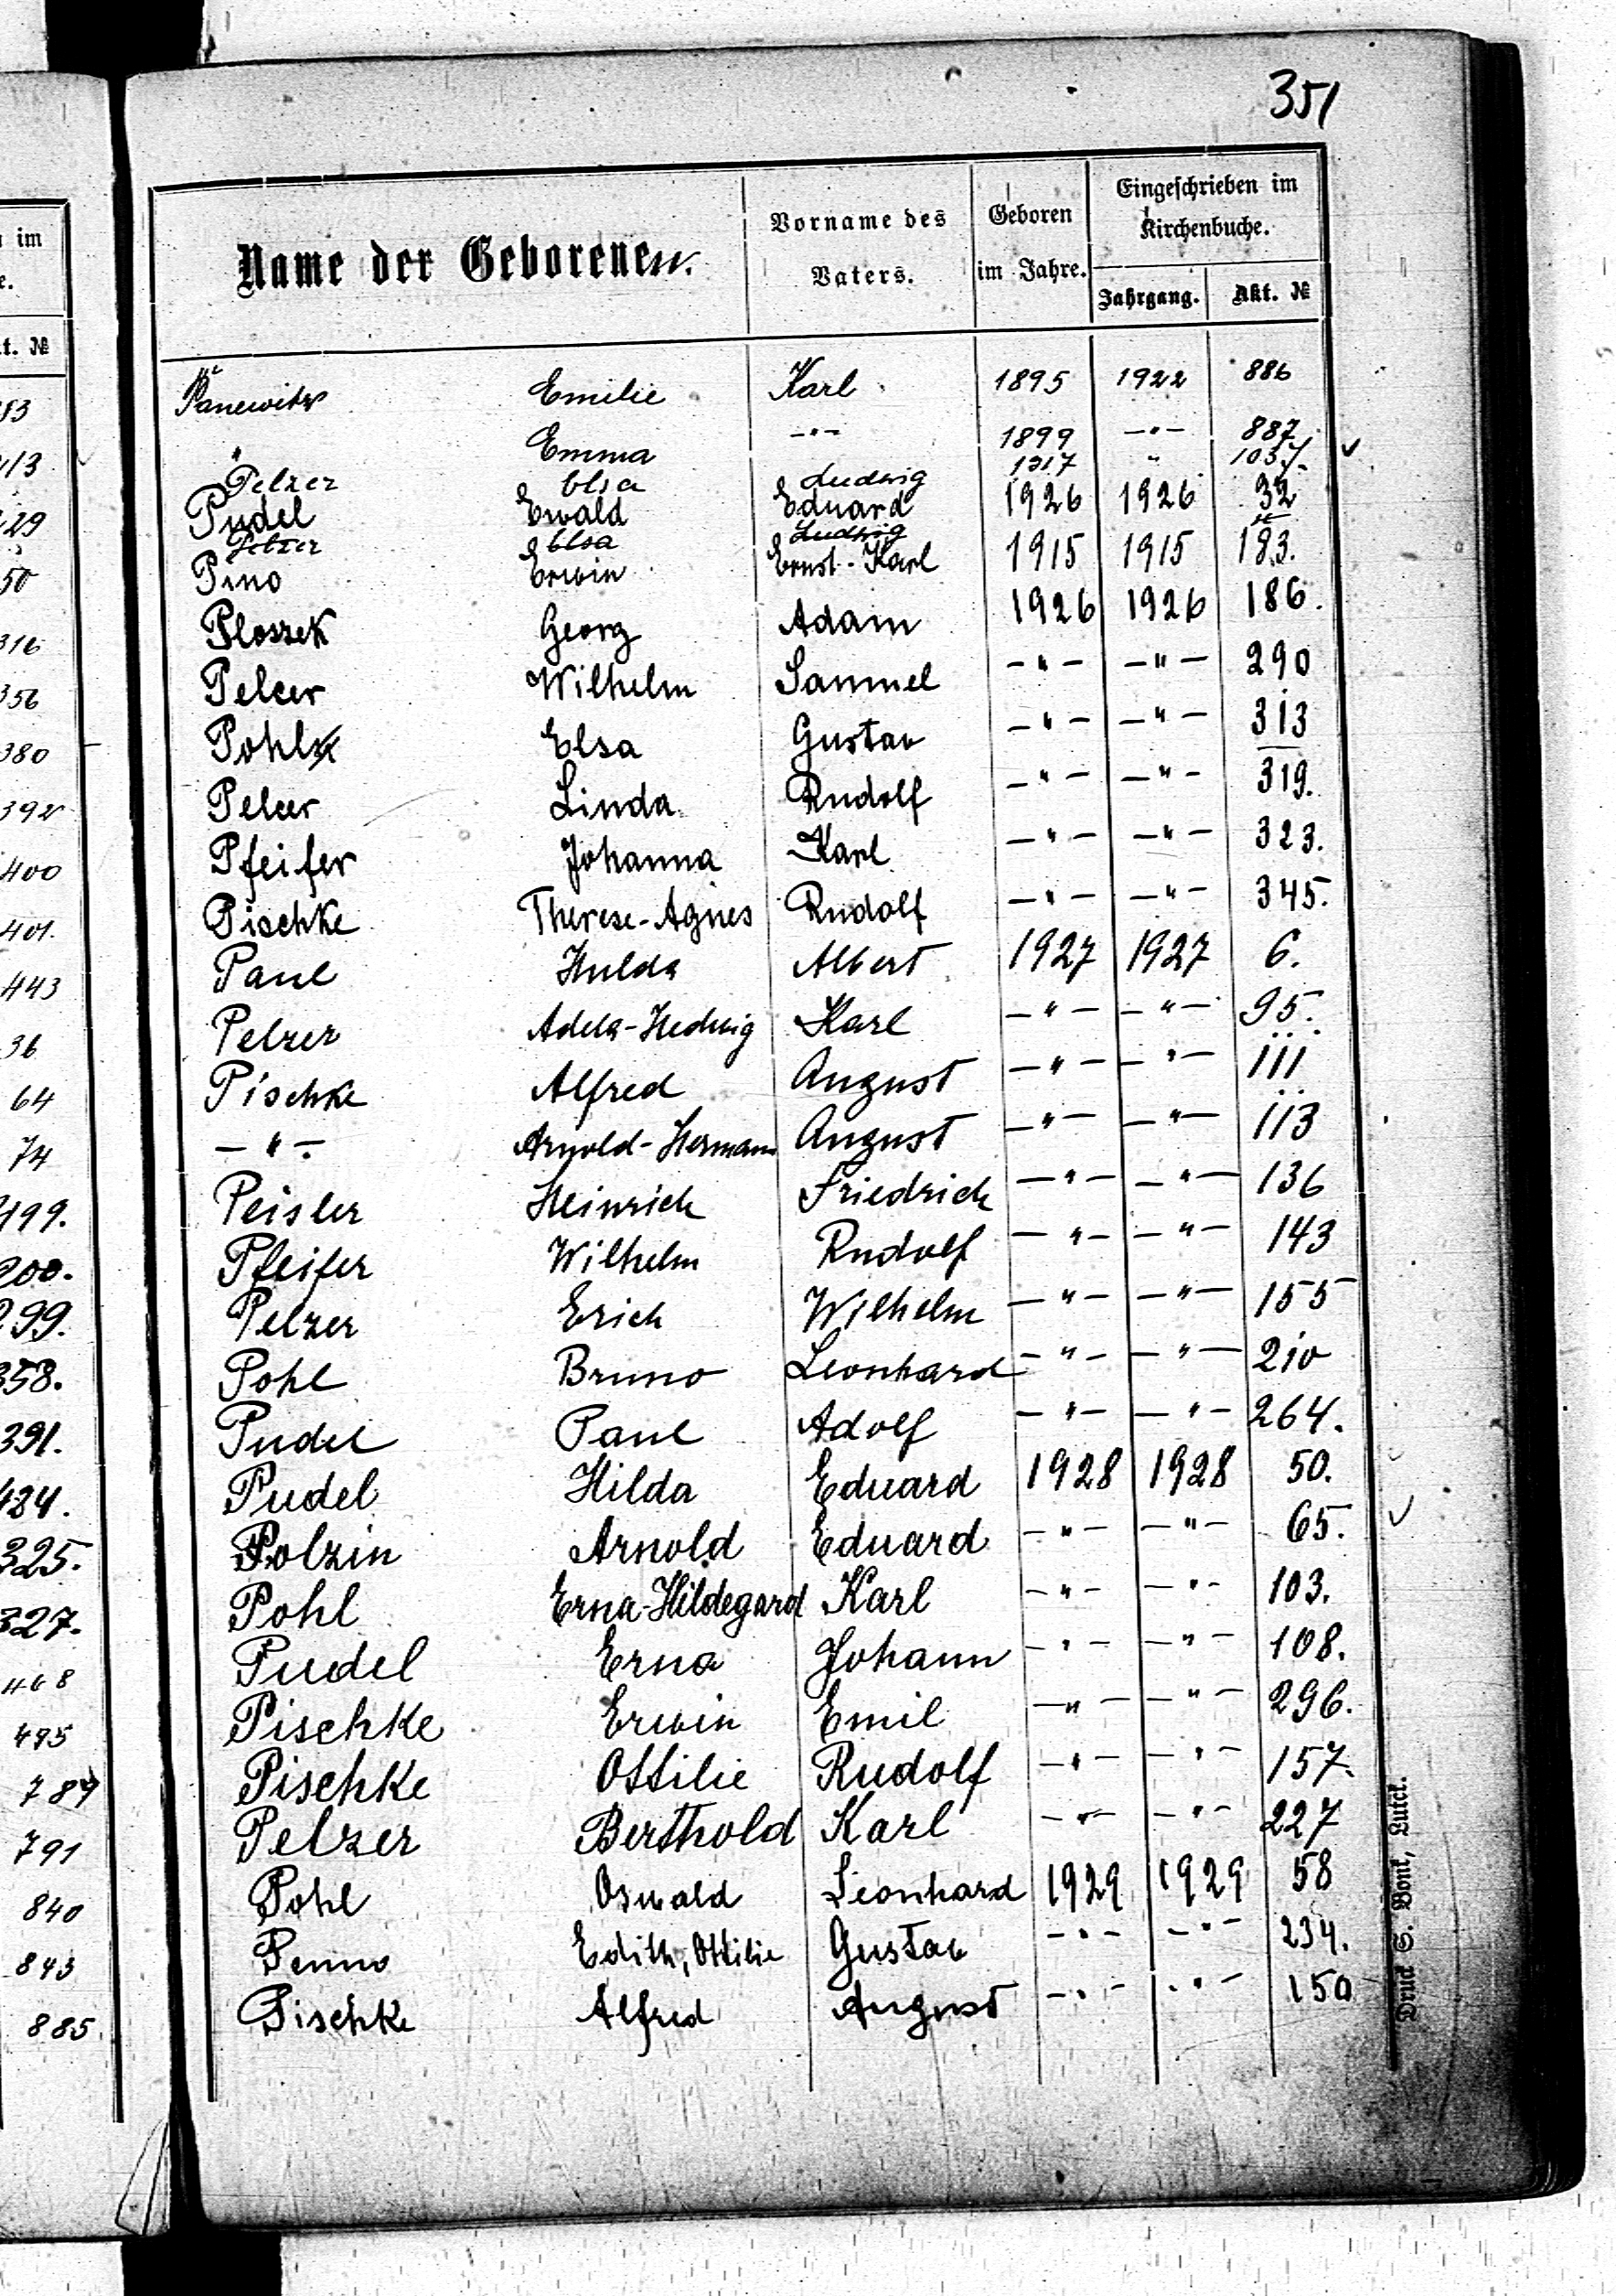 351
Name der Geborenen. Vorname des Vaters. Geboren im Jahre. Eingeschrieben im Kirchenbuche.
Jahrgang. Akt. №
Panewitz Emilie Karl 1895 1922 886
" Emma -"- 1899 -"- 887
Pelzer Elsa Ludwig 1917 " 1037.
Pudel Ewald Eduard 1926 1926 32
Pelzer Elsa Ludwig
Pino Erwin Ernst-Karl 1915 1915 183.
Plossek Georg Adam 1926 1926 186.
Pelcer Wilhelm Samuel -"- -"- 290
Pohl Elsa Gustav -"- -"- 313
Pelcer Linda Rudolf -"- -"- 319.
Pfeifer Johanna Karl -"- -"- 323.
Pischke Therese-Agnes Rudolf -"- -"- 345.
Paul Hulda Albert 1927 1927 6.
Pelzer Adela-Hedwig Karl -"- -"- 95.
Pischke Alfred August -"- -"- 111
-"- Arnold-Hermann August -"- -"- 113
Peisler Heinrich Friedrich -"- -"- 136
Pfeifer Wilhelm Rudolf -"- -"- 143
Pelzer Erich Wilhelm -"- -"- 155
Pohl Bruno Leonhard -"- -"- 210
Pudel Paul Adolf -"- -"- 264.
Pudel Hilda Eduard 1928 1928 50.
Polzin Arnold Eduard -"- -"- 65.
Pohl Erna-Hildegard Karl -"- -"- 103.
Pudel Erna Johann -"- -"- 108.
Pischke Erwin Emil -"- -"- 296.
Pischke Ottilie Rudolf -"- -"- 157.
Pelzer Berthold Karl -"- -"- 227
Pohl Oswald Leonhard 1929 1929 58
Penno Edith, Ottilie Gustav -"- -"- 234.
Pischke Alfred August -"- -"- 150
Druck S. Bonk, Lutck.
im
e.
t. №
83
413
29
50
316
356
380
392
400
401.
443
36
64
74
199.
200.
299.
358.
391.
484.
325.
327.
468
495
789
791
840
843
885